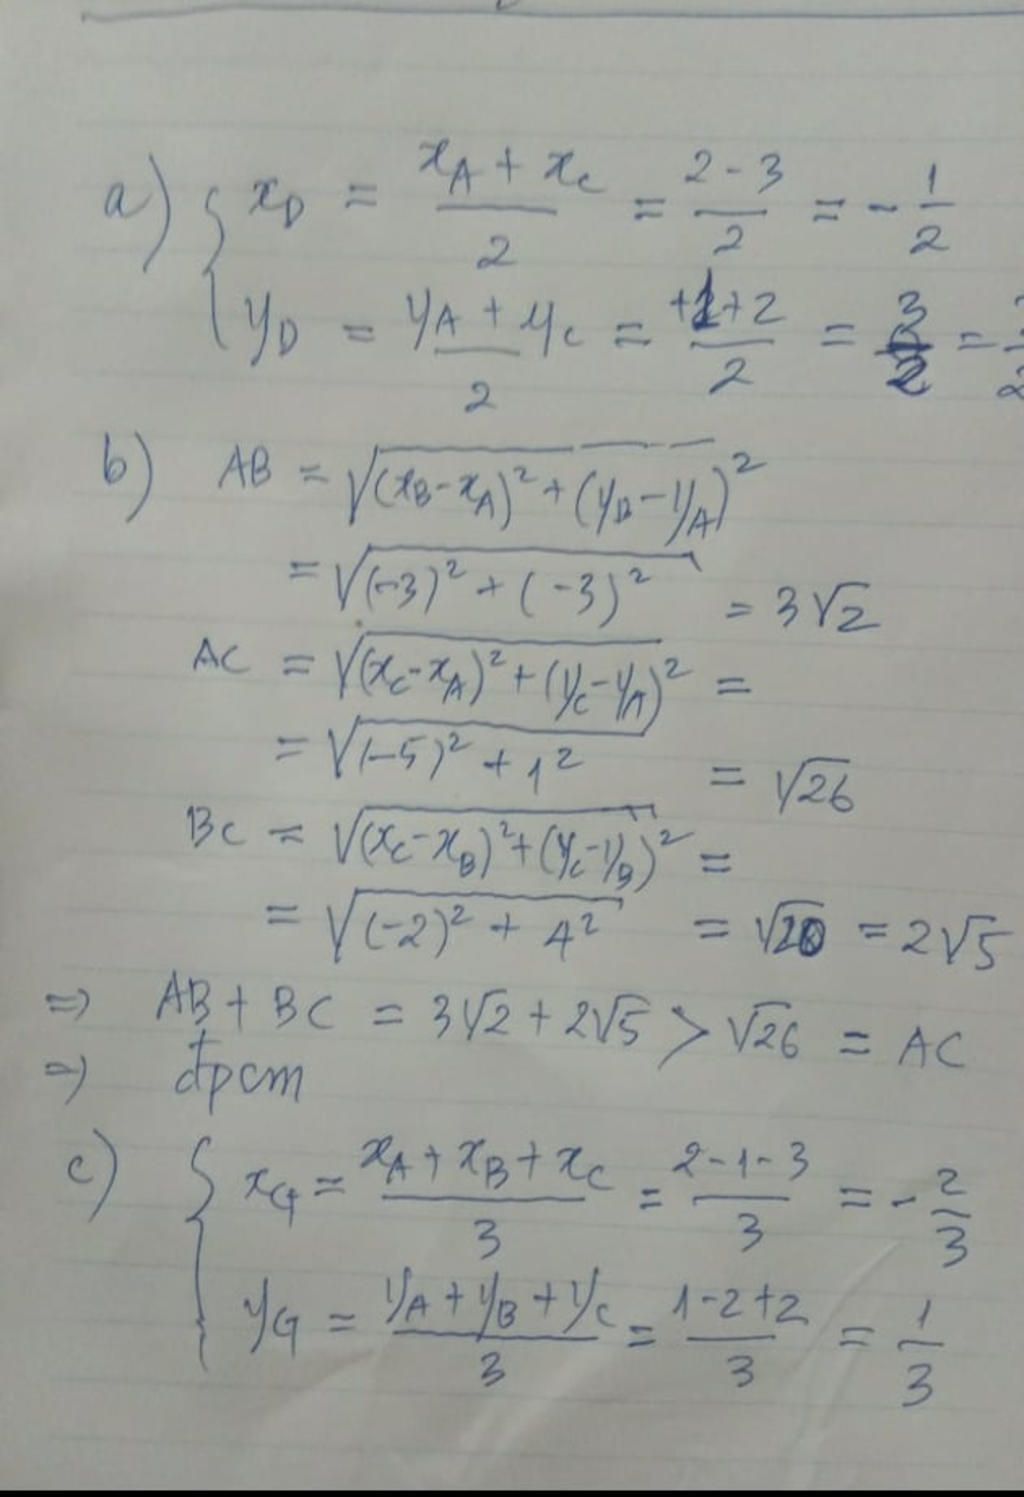 a) { x_D = (x_A + x_C)/2 = (2 - 3)/2 = - 1/2
y_D = (y_A + y_C)/2 = (+1 + 2)/2 = 3/2 =
b) AB = √((x_B - x_A)² + (y_B - y_A)²)
= √((-3)² + (-3)²) = 3√2
AC = √((x_C - x_A)² + (y_C - y_A)²) =
= √((-5)² + 1²) = √26
BC = √((x_C - x_B)² + (y_C - y_B)²) =
= √((-2)² + 4²) = √20 = 2√5
=> AB + BC = 3√2 + 2√5 > √26 = AC
=> đpcm
c) { x_G = (x_A + x_B + x_C)/3 = (2 - 1 - 3)/3 = - 2/3
y_G = (y_A + y_B + y_C)/3 = (1 - 2 + 2)/3 = 1/3